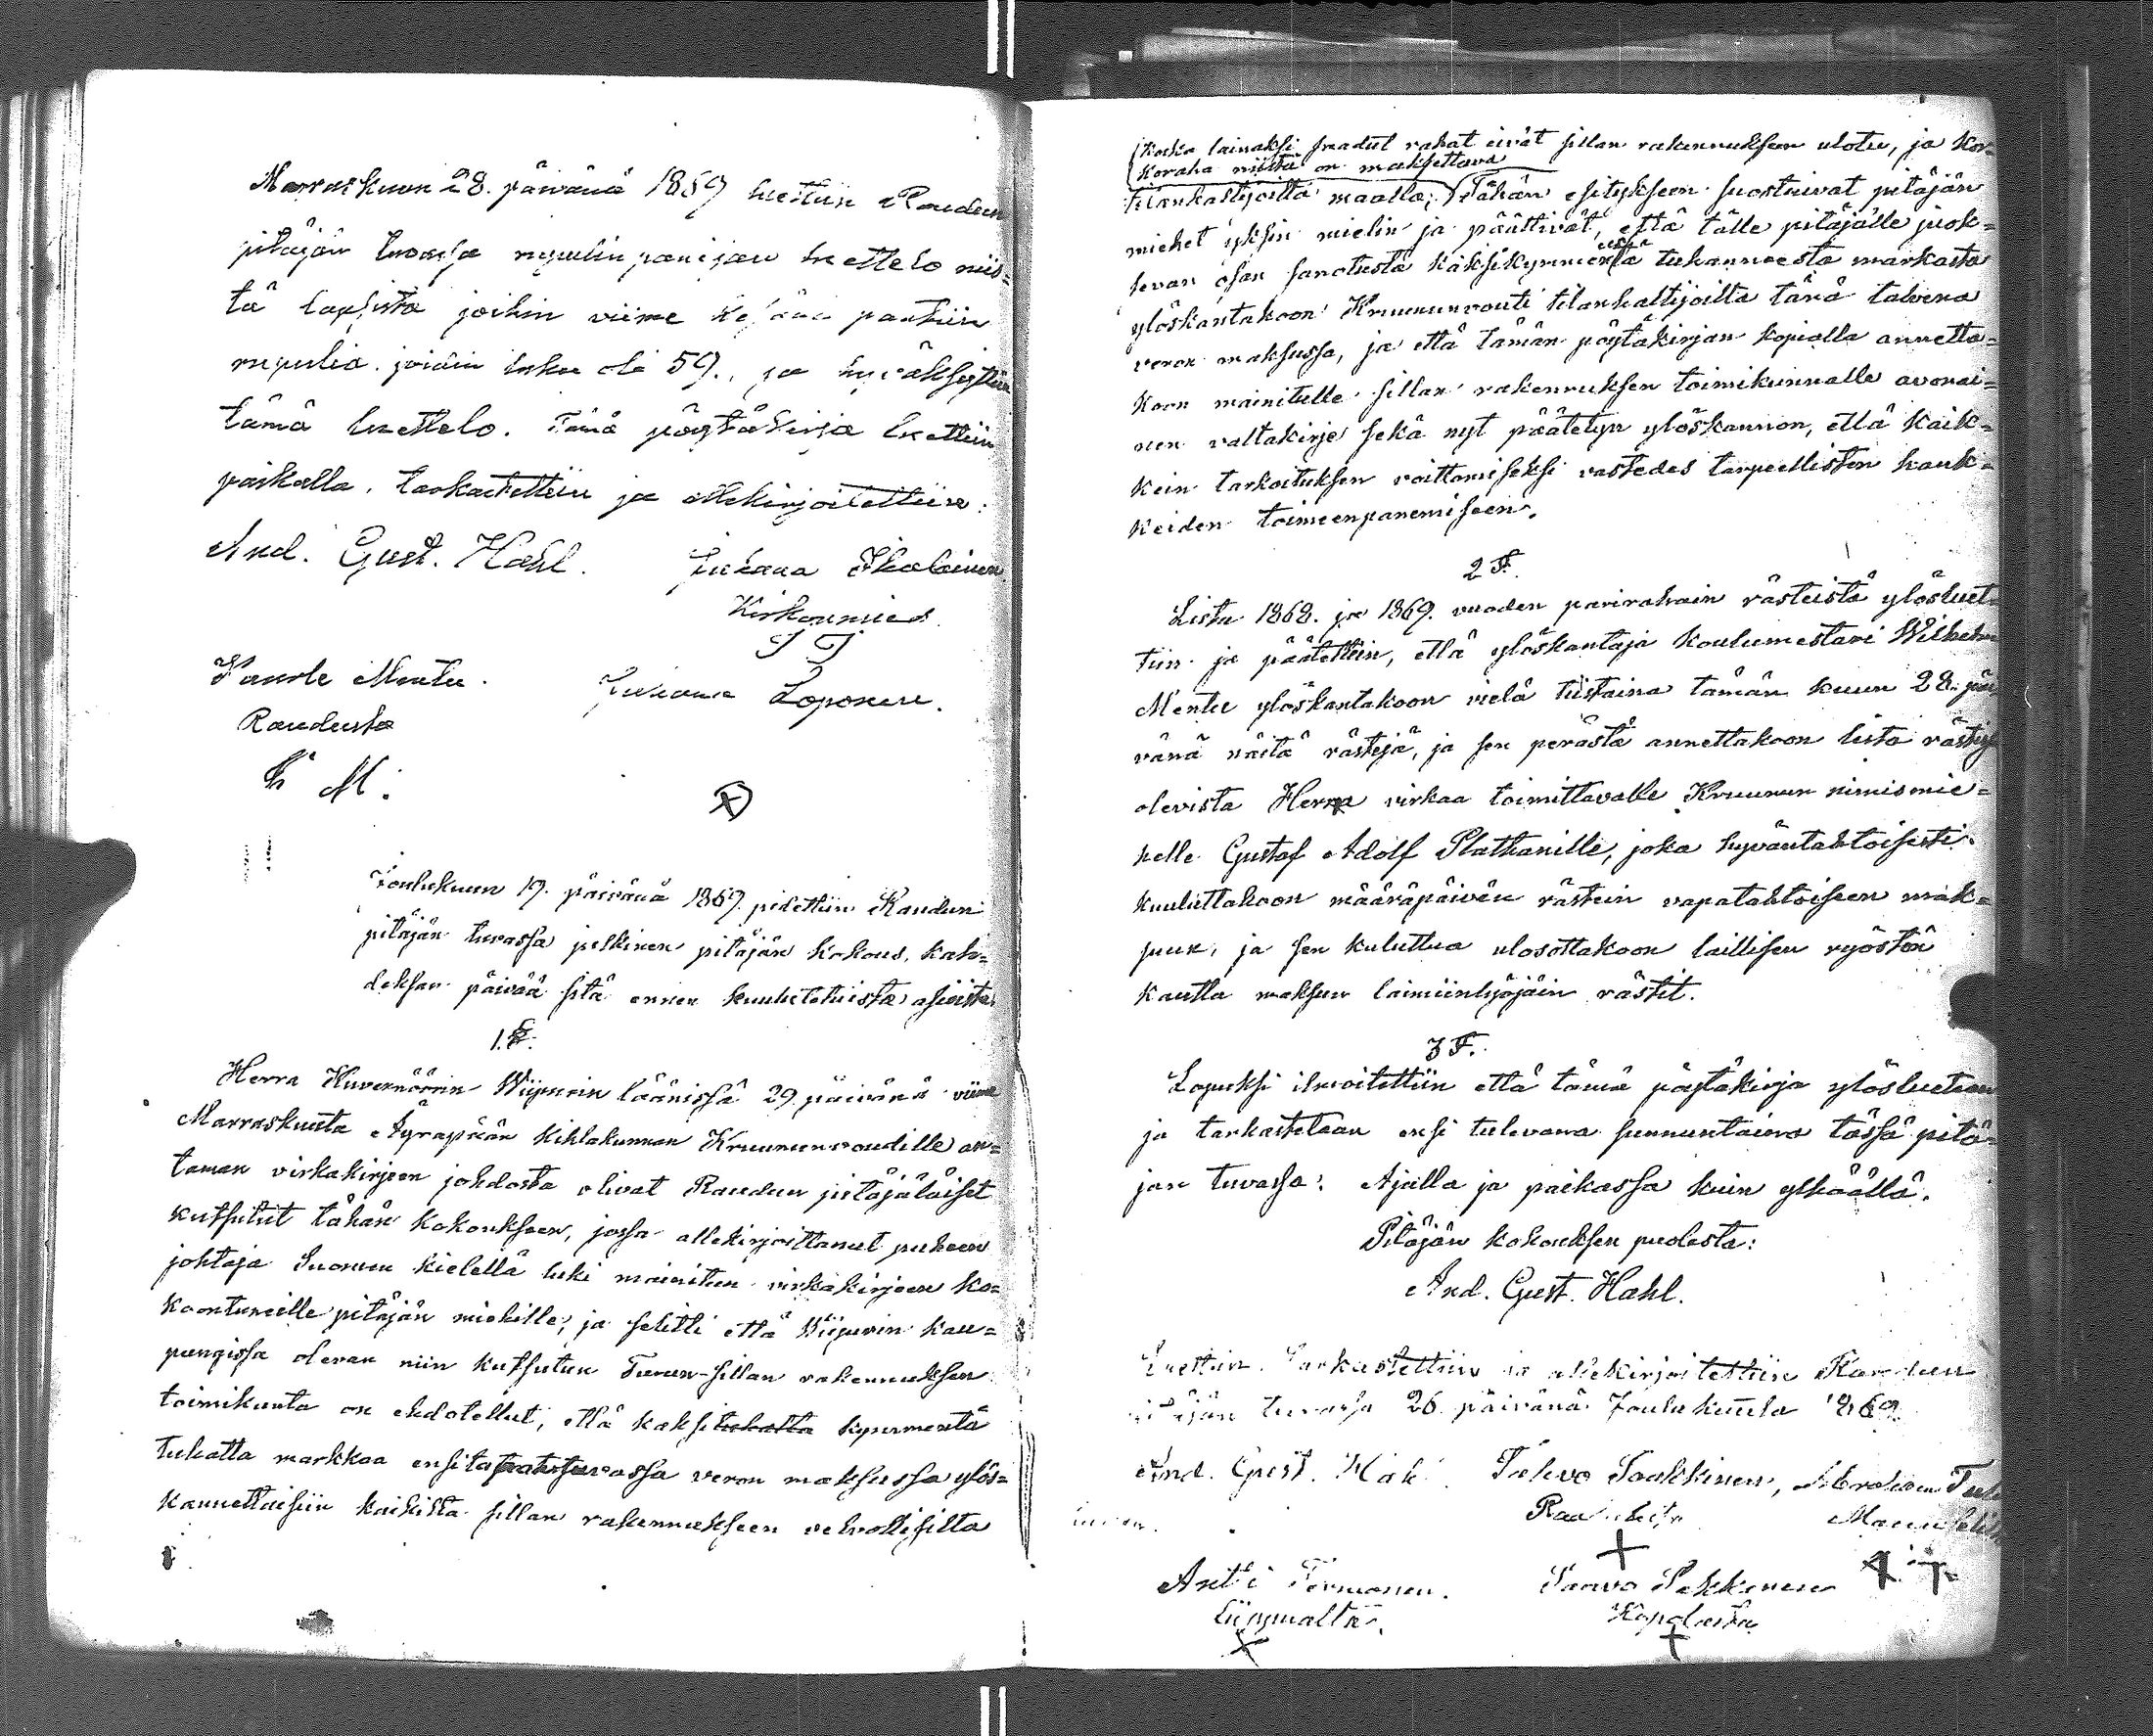 Marraskuun 28. päivänä 1869 luettiin Raudun
pitäjän tuvassa rupulin panijan luettelo niis=
tä lapsista joihin viime kesänä pantiin
rupulia. joiden luku oli 59., ja hyväksyttiin
tämä luettelo. Tämä pöytäkirja luettiin
paikalla, tarkastettiin ja allekirjoitettiin.
And. Gust. Hahl. Juhana Ikalainen
Kirkonmies
J J
Paavle Mentu. Juhana Loponen.
Raudusta
M.
Joulukuun 19. päivänä 1869. pidettiin Raudun
pitäjän tuvassa julkinen pitäjän kokous, kah=
deksan päivää sitä ennen kuulutetuista asioista.
1. §.
Herra Kuvernöörin Wiipurin läänissä 29 päivänä viime
Marraskuuta Äyräpään kihlakunnan Kruununvoudille an=
taman virkakirjeen johdosta olivat Raudun pitäjäläiset
kutsutut tähän kokoukseen, jossa allekirjoittanut puheen
johtaja Suomen kielellä luki mainitun virkakirjeen ko=
koontuneille pitäjän miehille, ja selitti että Wiipurin kau=
pungissa olevan niin kutsutun Turun-sillan rakennuksen
toimikunta on ehdotellut, että kaksi tuhatta kymmentä
tuhatta markkaa ensi tavassa veron maksussa ylös=
kannettaisiin kaikilta sillan rakennukseen velvollisilta
Koska lainaksi saadut rahat eivät sillan rakennuksen ulotu, ja kor=
koraha niistä on maksettava
tilanhaltijoilta maalla; Tähän esitykseen suostuivat pitäjän
miehet yksin mielin ja päättivät, että tälle pitäjälle juok=
sevan osan sanotusta kaksikymmentä tuhannesta markasta
ylöskantakoon Kruununvouti tilanhaltijoilta tänä talvena
veron maksussa, ja että tämän pöytäkirjan kopialla annetta=
koon mainitulle sillan rakennuksen toimikunnalle avonai=
nen valtakirja sekä nyt päätetyn ylöskannon, että kaik=
kein tarkoituksen voittamiseksi vastedes tarpeellisten hank=
keiden toimeenpanemiseen.
2 §.
Lista 1868. ja 1869. vuoden parirahain rästeistä ylösluet=
tiin ja päätettiin, että ylöskantaja koulumestari Wilhelm
Mentu ylöskantakoon vielä tiistaina tämän kuun 28. päi
vänä näitä rästejä, ja sen perästä annettakoon lista rästissä
olevista Herra virkaa toimittavalle Kruunun nimismie=
helle Gustaf Adolf Plathanille, joka hyväntahtoisesti
kuuluttakoon määräpäivän rästein vapatahtoiseen mak=
suun, ja sen kuluttua ulosottakoon laillisen ryöstön
kautta maksun laimiinlyöjäin rästit.
3 §.
Lopuksi ilmoitettiin että tämä pöytäkirja ylösluetaan
ja tarkastetaan ensi tulevana sunnuntaina tässä pitä=
jän tuvassa. Ajalla ja paikassa kuin ylhäällä.
Pitäjän kokouksen puolesta:
And. Gust. Hahl.
Luettiin. tarkastettiin ja allekirjoitettiin Raudun
pitäjän tuvassa 26 päivänä Joulukuuta 1869.
And. Gust. Hahl. Pahvo Paukkinen,
Antti Termonen. Paavo Pekkinen